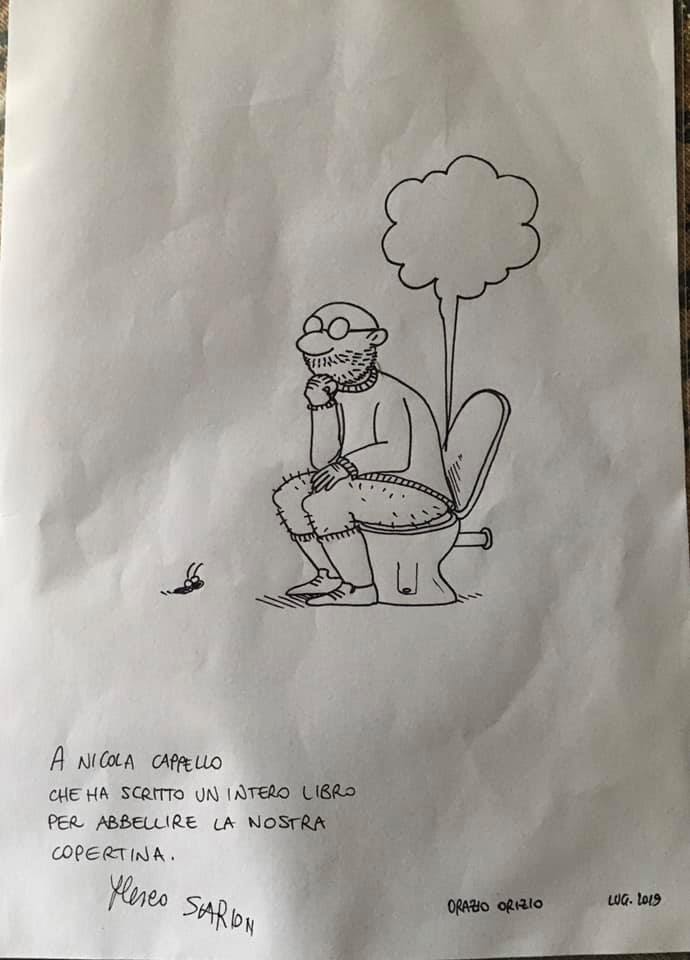 A NICOLA CAPPELLO
CHE HA SCRITTO UN INTERO LIBRO
PER ABBELLIRE LA NOSTRA
COPERTINA.
ORAZIO ORIZIO
LUG. 2019